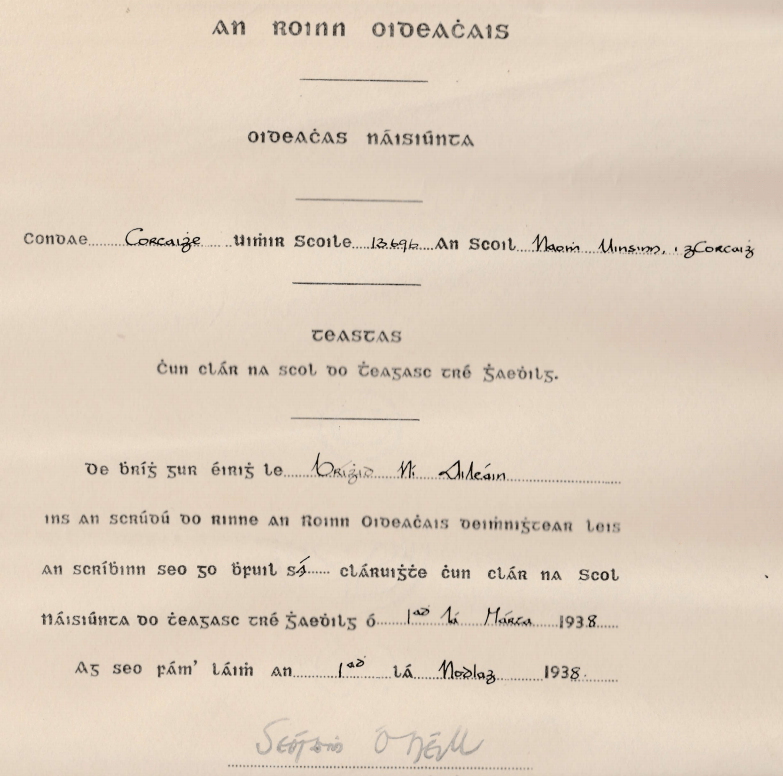 An Roinn Oideaċais
Oideaċas Náisiúnta
Condae Corcaiġe Uiṁir Scoile 13696 An Scoil Naoṁ Uinsinn, i gCorcaiġ
Teastas
ċun clár na scol do ṫeagasc tré Ġaeḋilg.
De ḃríġ gur éiriġ le Brigid Ní Oileáin
ins an scrúdú do rinne an Roinn Oideaċais deiṁniġtear leis
an scríḃinn seo go ḃfuil sí cláruiġṫe ċun clár na Scol
Náisiúnta do ṫeagasc tré Ġaeḋilg ó 1ad lá Márta 1938
Ag seo fám' láiṁ an 1ad lá Nodlag 1938
Ó Néill